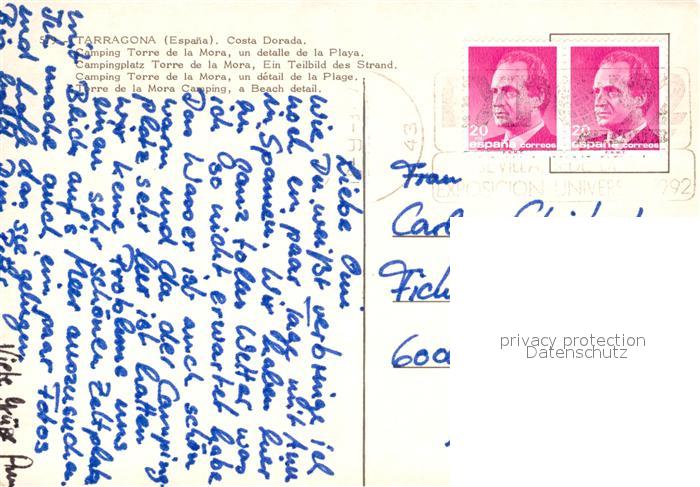 TARRAGONA (España). Costa Dorada.
Camping Torre de la Mora, un detalle de la Playa.
Campingplatz Torre de la Mora, Ein Teilbild des Strand.
Camping Torre de la Mora, un détail de la Plage.
Torre de la Mora Camping, a Beach detail.
20
españa correos
20
españa correos
43
SEVILLA
EXPOSICION UNIVERS 992
Liebe Omi
Wie Du weißt verbringe ich
noch ein paar Tage mit
in Spanien. Wir haben hier
ein ganz tolles Wetter was
ich so nicht erwartet habe
Das Wasser ist auch schön
warm und da der Camping
platz sehr leer ist hatten
wir keine Probleme uns
einen sehr schönen Zeltplatz
mit Blick auf's Meer auszusuchen.
Ich mache auch ein paar Fotos
und hoffe das sie gelingen
Bis bald Dein
Viele Grüße
Frau
Fich
600
privacy protection
Datenschutz